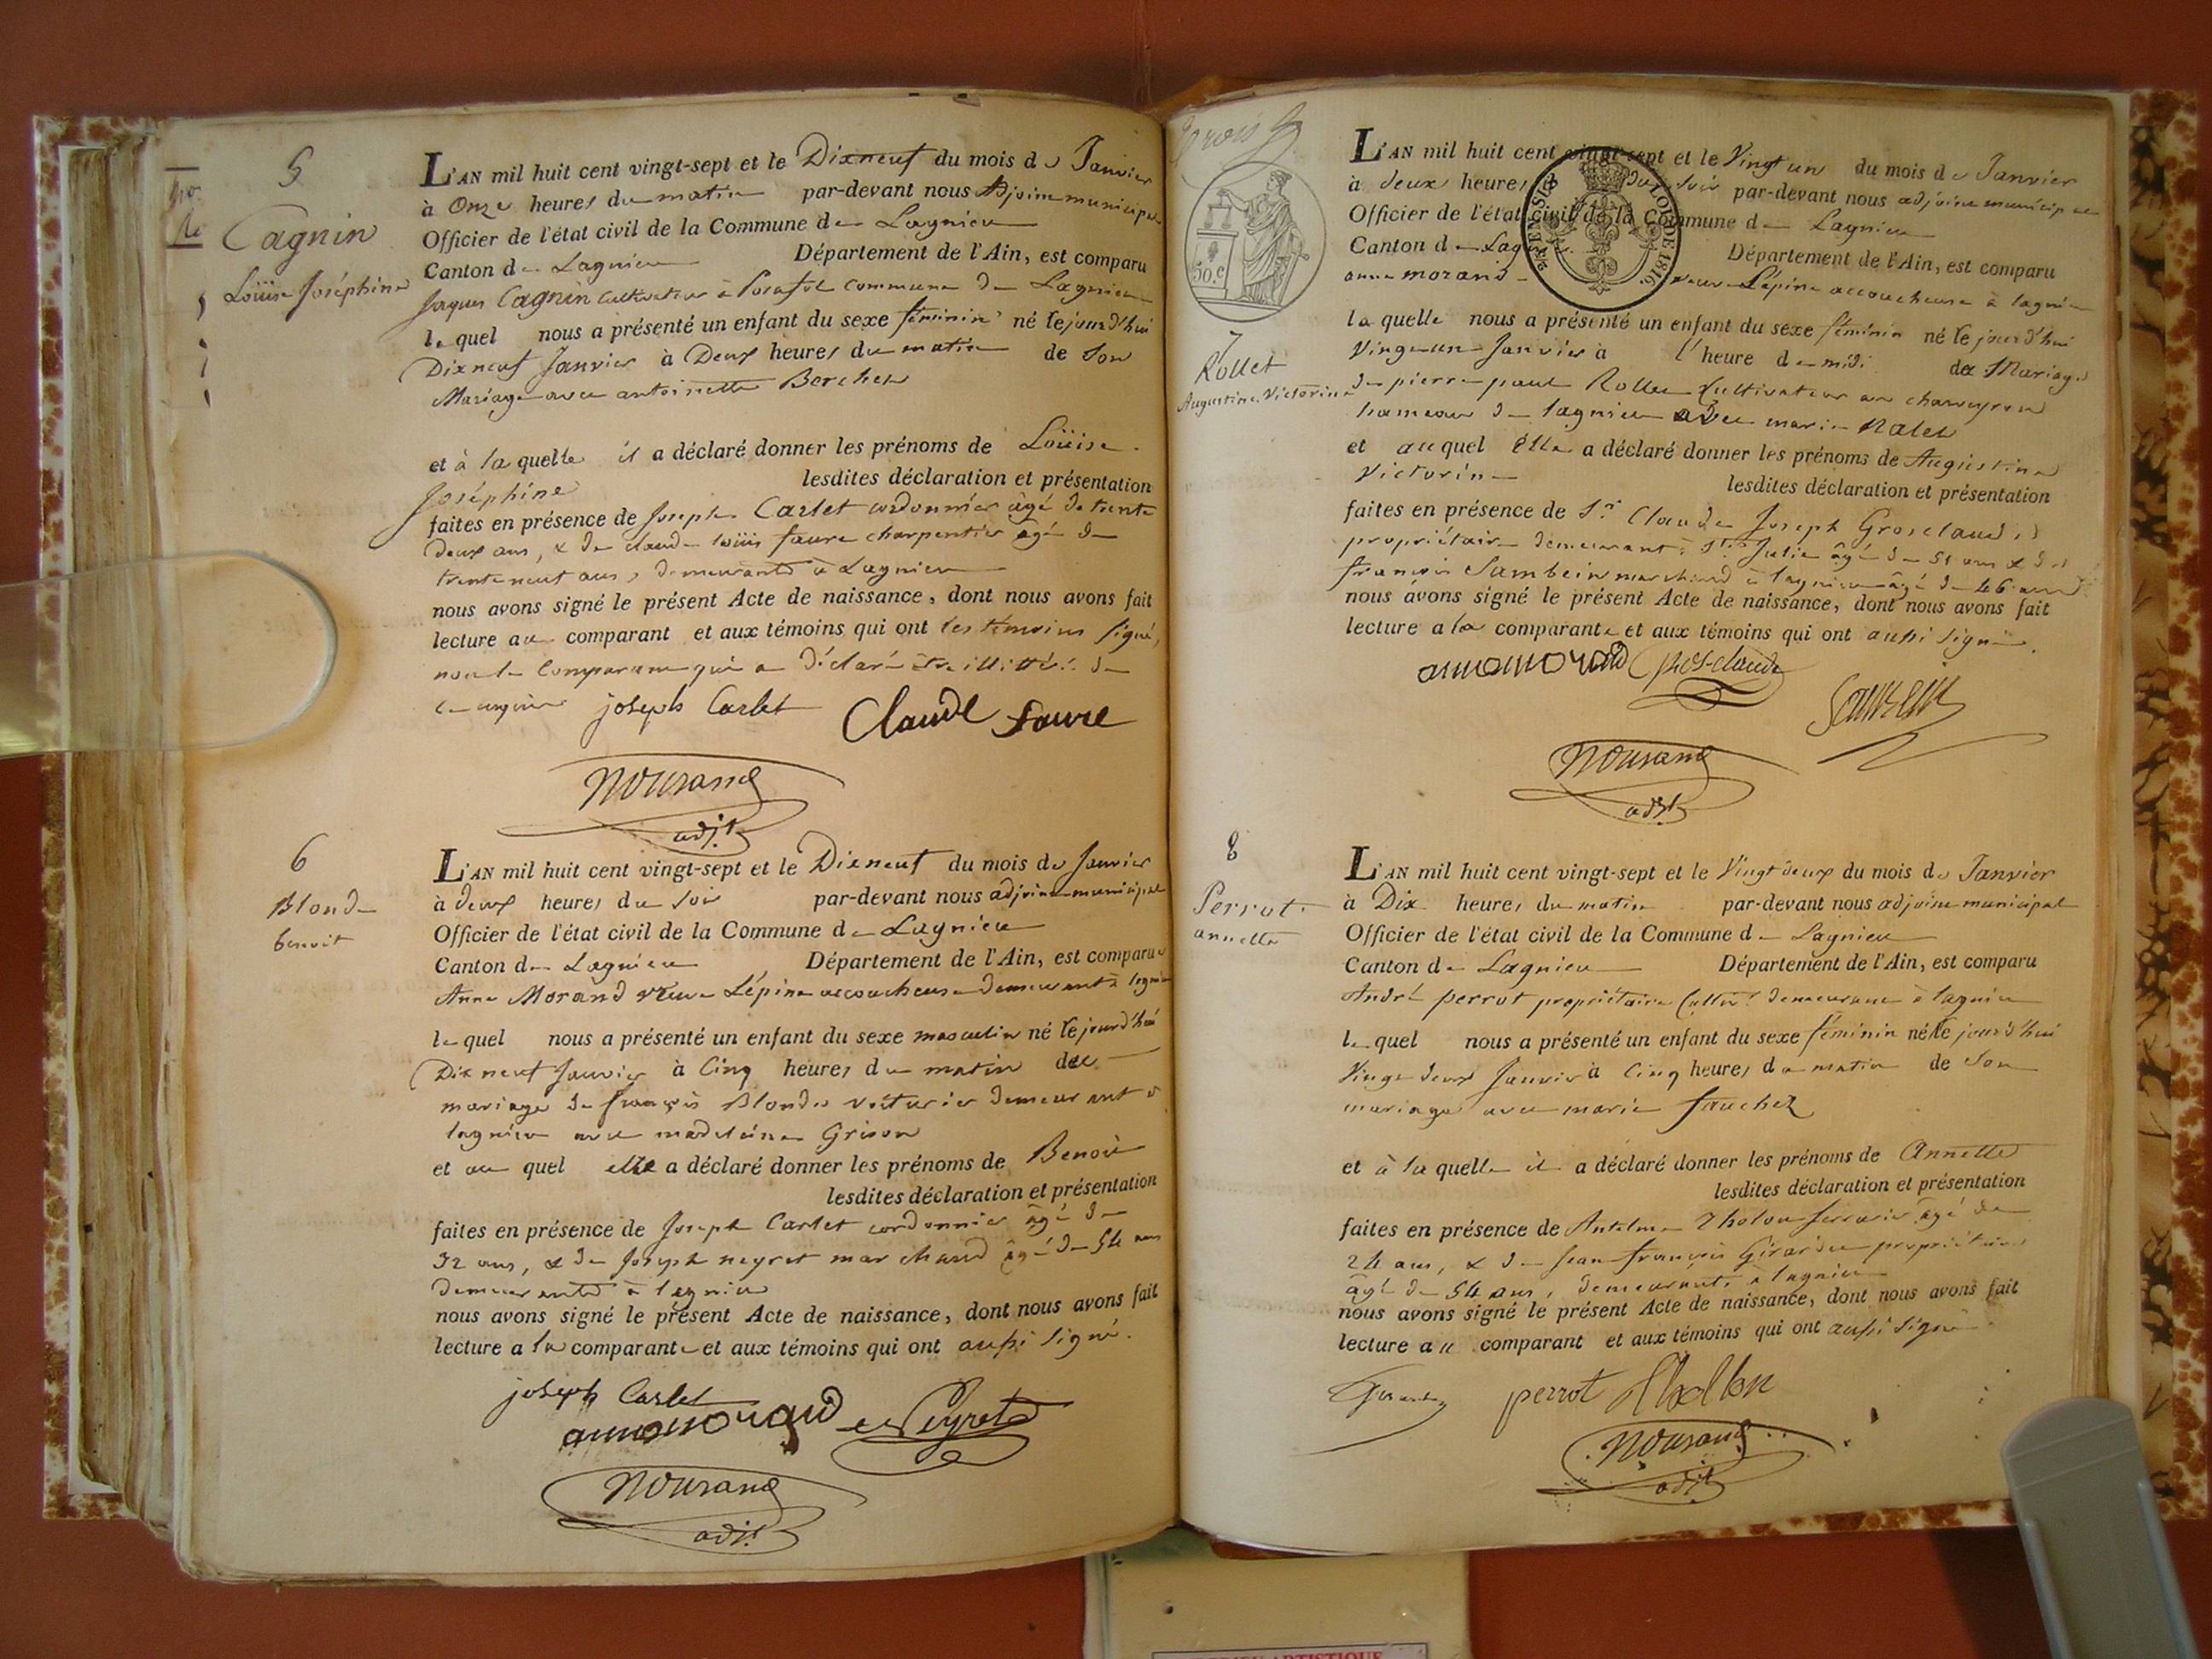 5
Cagnin
Loüise Joséphine
L'AN mil huit cent vingt-sept et le Dixneuf du mois de Janvier
à Onze heures du matin par-devant nous Adjoint municipal
Officier de l'état civil de la Commune de Lagnieu
Canton de Lagnieu Département de l'Ain, est comparu
Jaques Cagnin Cultivateur à commune de Lagnieu
le quel nous a présenté un enfant du sexe féminin né le jourd'hui
Dixneuf Janvier à Deux heures du matin de Son
Mariage avec antoinette Berchet
et à la quelle il a déclaré donner les prénoms de Loüise
Joséphine lesdites déclaration et présentation
faites en présence de Joseph Carlet cordonnier âgé de trente
deux ans, & de claude loüis faure charpentier âgé de
trente neuf ans, demeurants à Lagnieu
nous avons signé le présent Acte de naissance, dont nous avons fait
lecture au comparant et aux témoins qui ont les témoins signé,
non le Comparant qui a déclaré être illittéré de
ce enquis joseph Carlet Claude faure
Mourand
adj.t
6
Blonde
benoit
L'AN mil huit cent vingt-sept et le Dixneuf du mois de Janvier
à deux heures du soir par-devant nous adjoint municipal
Officier de l'état civil de la Commune de Lagnieu
Canton de Lagnieu Département de l'Ain, est comparue
Anne Morand veuve Lépine accoucheuse demeurant à lagnieu
le quel nous a présenté un enfant du sexe masculin né le jourd'hui
Dixneuf Janvier à Cinq heures du matin de
mariage de françois Blonde voiturier demeurant à
lagnieu avec madeleine Grison
et au quel elle a déclaré donner les prénoms de Benoit
lesdites déclaration et présentation
faites en présence de Joseph Carlet cordonnier âgé de
32 ans, & de Joseph neyret marchand âgé de 54 ans
demeurants à lagnieu
nous avons signé le présent Acte de naissance, dont nous avons fait
lecture a la comparante et aux témoins qui ont aussi signé.
joseph Carlet
anne morand Neyret
Mourand
adj.t
50.c
LOI DE 1816.
7
Rollet
Augustine Victorine
L'AN mil huit cent vingt-sept et le Vingt un du mois de Janvier
à deux heures du soir par-devant nous adjoint municipal
Officier de l'état civil de la Commune de Lagnieu
Canton de Lagnieu Département de l'Ain, est comparu
anne morand veuve Lépine accoucheuse à lagnieu
la quelle nous a présenté un enfant du sexe féminin né le jourd'hui
Vingt un Janvier à l'heure de midi de Mariage
de pierre paul Rollet Cultivateur au charveyron
hameau de lagnieu avec marie
et auquel Elle a déclaré donner les prénoms de Augustine
Victorine lesdites déclaration et présentation
faites en présence de S.r Claude Joseph Grosclaude,
propriétaire demeurant à S.te Julie âgé de 51 ans & de
françois Sambein marchand à lagnieu âgé de 46 ans
nous avons signé le présent Acte de naissance, dont nous avons fait
lecture a la comparante et aux témoins qui ont aussi signé.
anne morand Grosclaude
Sambein
Mourand
adj.t
8
Perrot
annette
L'AN mil huit cent vingt-sept et le Vingt deux du mois de Janvier
à Dix heures du matin par-devant nous adjoint municipal
Officier de l'état civil de la Commune de Lagnieu
Canton de Lagnieu Département de l'Ain, est comparu
André perrot propriétaire Cultiv.r demeurant à lagnieu
le quel nous a présenté un enfant du sexe féminin né le jourd'hui
Vingt deux Janvier à Cinq heures du matin de Son
mariage avec marie fauchet
et à la quelle il a déclaré donner les prénoms de Annette
lesdites déclaration et présentation
faites en présence de Antelme Tholon serrurier âgé de
24 ans, & de Jean françois Girardin propriétaire
âgé de 54 ans, demeurants à lagnieu
nous avons signé le présent Acte de naissance, dont nous avons fait
lecture au comparant et aux témoins qui ont aussi signé
perrot
Mourand
adj.t